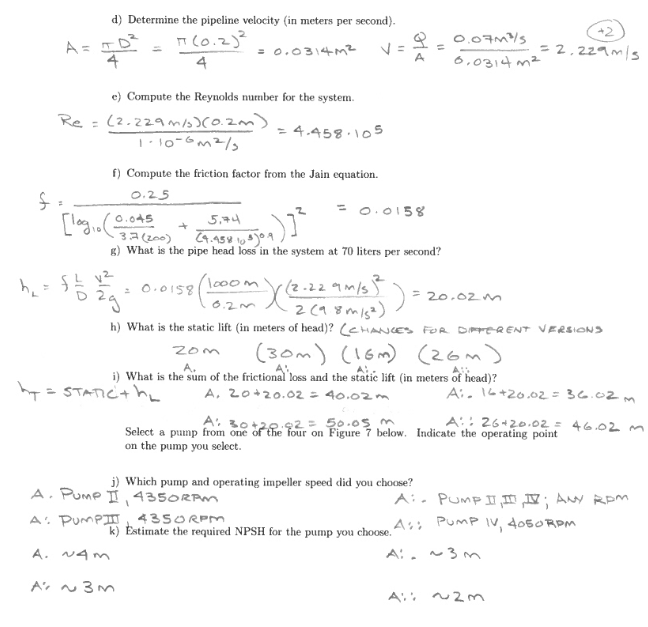 d) Determine the pipeline velocity (in meters per second).
+2
A = πD²/4 = π(0.2)²/4 = 0.0314m² V = Q/A = 0.07m³/s / 0.0314m² = 2.229m/s
e) Compute the Reynolds number for the system.
Re = (2.229m/s)(0.2m) / 1·10⁻⁶m²/s = 4.458·10⁵
f) Compute the friction factor from the Jain equation.
f = 0.25 / [log₁₀(0.045/3.7(200) + 5.74/(4.458·10⁵)^0.9)]² = 0.0158
g) What is the pipe head loss in the system at 70 liters per second?
h_L = f L/D v²/2g = 0.0158(1000m/0.2m)((2.229m/s)²/2(9.8m/s²)) = 20.02m
h) What is the static lift (in meters of head)? (CHANGES FOR DIFFERENT VERSIONS
20m (30m) (16m) (26m)
A. A: A:. A::
i) What is the sum of the frictional loss and the static lift (in meters of head)?
h_T = STATIC + h_L A. 20+20.02 = 40.02m A:. 16+20.02 = 36.02m
A: 30+20.02 = 50.05 m A:: 26+20.02 = 46.02 m
Select a pump from one of the four on Figure 7 below. Indicate the operating point
on the pump you select.
j) Which pump and operating impeller speed did you choose?
A. PUMP II, 4350RPM A:. PUMP II, III, IV; ANY RPM
A: PUMP III, 4350RPM A:: PUMP IV, 4050RPM
k) Estimate the required NPSH for the pump you choose.
A. ~4m A:. ~3m
A: ~3m A:: ~2m